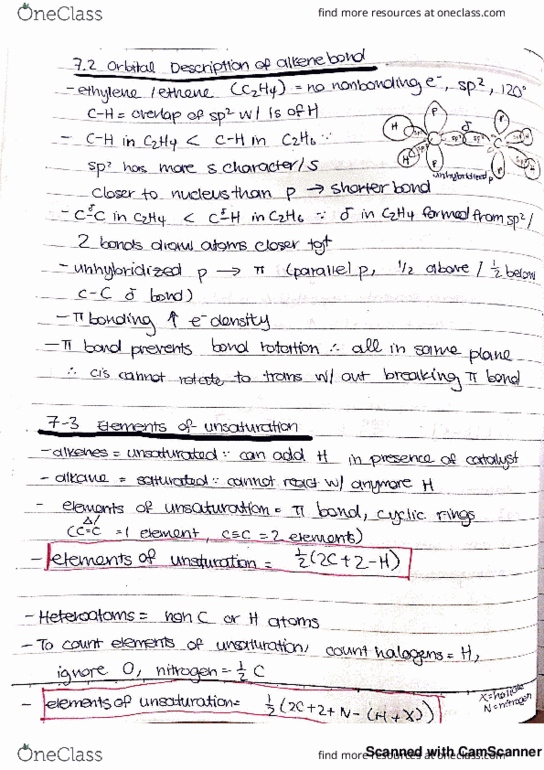 OneClass
find more resources at oneclass.com
7.2 Orbital Description of alkene bond
- ethylene / ethene (C2H4) = no nonbonding e-, sp², 120°
C-H = overlap of sp² w/ 1s of H
- C-H in C2H4 < C-H in C2H6 ∵
sp² has more s character / s
closer to nucleus than p → shorter bond
unhybridized p
- C-C in C2H4 < C-H in C2H6 ∵ σ in C2H4 formed from sp² /
2 bonds draw atoms closer tgt
- unhybridized p → π (parallel p, 1/2 above / 1/2 below
C-C σ bond)
- π bonding ↑ e- density
- π bond prevents bond rotation ∴ all in same plane
∴ cis cannot rotate to trans w/out breaking π bond
7-3 Elements of unsaturation
- alkenes = unsaturated ∵ can add H in presence of catalyst
- alkane = saturated ∵ cannot react w/ anymore H
- elements of unsaturation = π bond, cyclic rings
(C=C / Δ = 1 element, C≡C = 2 elements)
- elements of unsaturation = 1/2 (2C+2-H)
- Heteroatoms = non C or H atoms
- To count elements of unsaturation, count halogens = H,
ignore O, nitrogen = 1/2 C
- elements of unsaturation = 1/2 (2C+2+N-(H+X))
X=halide
N=nitrogen
OneClass
find more resources at oneclass.com
Scanned with CamScanner